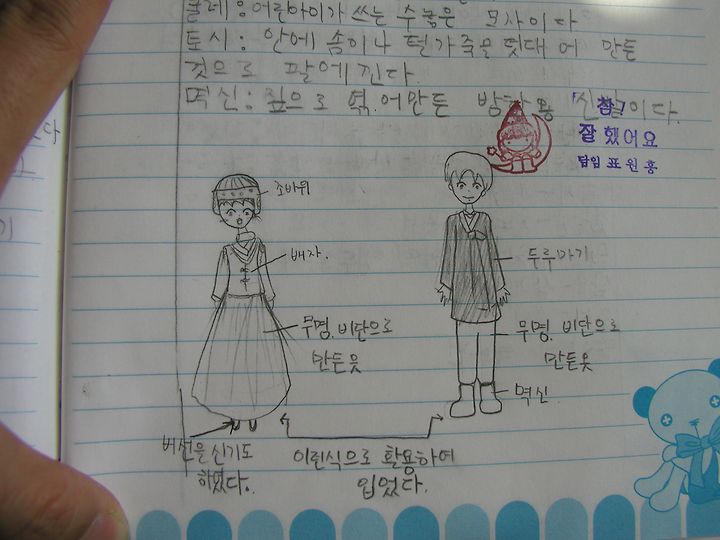 굴레 : 어린아이가 쓰는 수놓은 모자이다
토시 : 안에 솜이나 털가죽을 덧대어 만든
것으로 팔에 낀다.
멱신 : 짚으로 엮어만든 방한용 신발이다.
참!
잘했어요
담임 표원홍
조바위
배자.
두루마기
무명. 비단으로
만든옷
무명. 비단으로
만든옷
멱신
버선을 신기도
하였다.
이런식으로 활용하여
입었다.